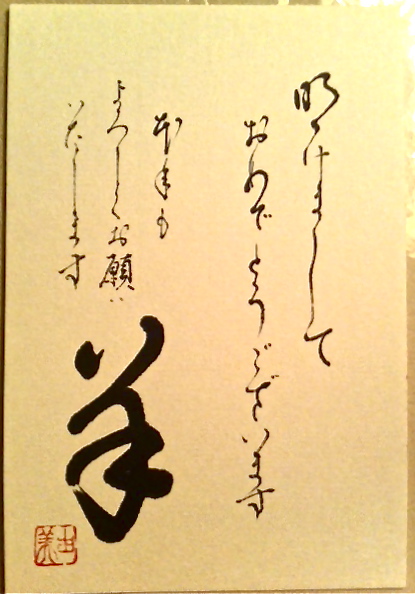 明けまして
おめでとうございます
本年も
よろしくお願い
いたします
羊